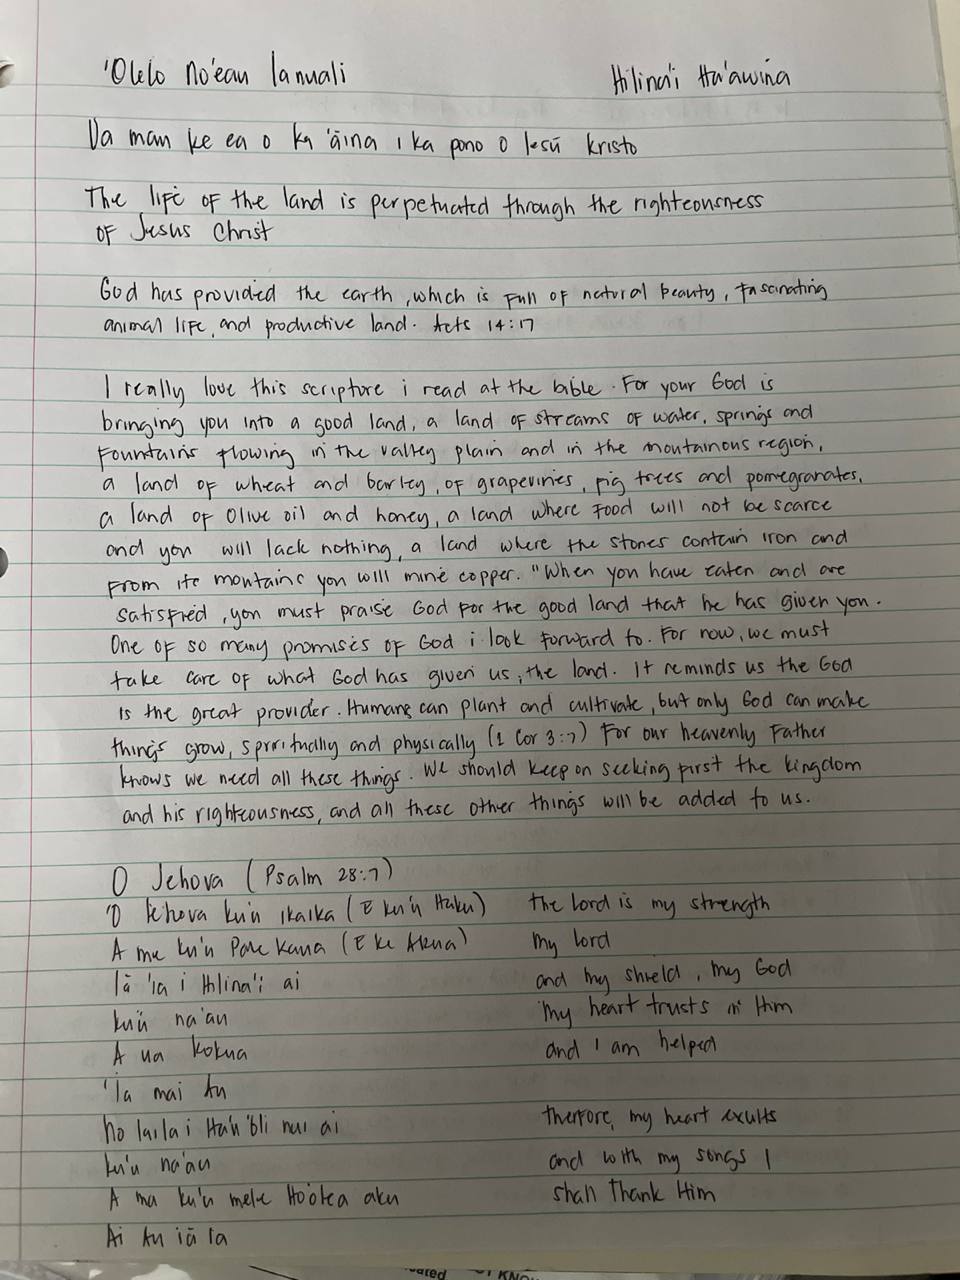 'Olelo No'eau Ianuali Hilina'i Ha'awina
Ua mau ke ea o ka 'āina i ka pono o Iesū Kristo
The life of the land is perpetuated through the righteousness
of Jesus Christ
God has provided the earth, which is full of natural beauty, fascinating
animal life, and productive land. Acts 14:17
I really love this scripture i read at the bible. For your God is
bringing you into a good land, a land of streams of water, springs and
fountains flowing in the valley plain and in the moutainous region,
a land of wheat and barley, of grapevines, fig trees and pomegranates,
a land of Olive oil and honey, a land where food will not be scarce
and you will lack nothing, a land where the stones contain iron and
from its montains you will mine copper. "When you have eaten and are
satisfied, you must praise God for the good land that he has given you.
One of so many promises of God i look forward to. For now, we must
take care of what God has given us, the land. It reminds us the God
is the great provider. Humans can plant and cultivate, but only God can make
things grow, spiritually and physically (1 Cor 3:7) For our heavenly Father
knows we need all these things. We should keep on seeking first the kingdom
and his righteousness, and all these other things will be added to us.
O Jehova (Psalm 28:7)
'O Iehova ku'u ikaika (E ku'u Haku) the Lord is my strength
A me ku'u Pale kaua (E ke Akua) my lord
Iā 'ia i Hilina'i ai and my shield, my God
ku'u na'au my heart trusts in Him
A ua kokua and I am helped
'Ia mai Au
No laila i Hau'oli nui ai therefore, my heart exults
ku'u na'au and with my songs I
A ma ku'u mele Ho'olea aku shall Thank Him
Ai Au iā Ia